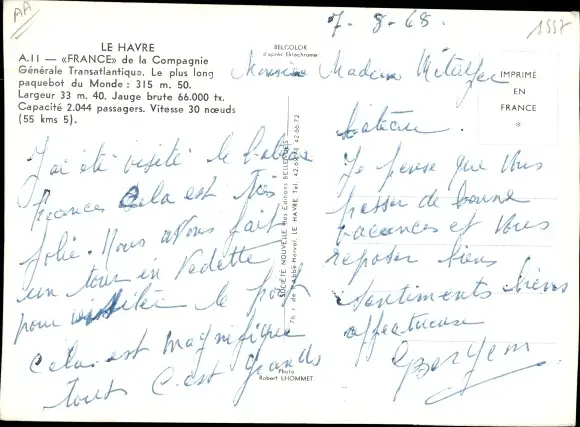 AA
7-8-68.
1557
LE HAVRE
A.11 — «FRANCE» de la Compagnie
Générale Transatlantique. Le plus long
paquebot du Monde : 315 m. 50.
Largeur 33 m. 40. Jauge brute 66.000 tx.
Capacité 2.044 passagers. Vitesse 30 nœuds
(55 kms 5).
BELCOLOR
d'après Ektachrome
IMPRIMÉ
EN
FRANCE
*
Madame
bateau.
J'ai été visité le bateau
frances Cela est très
jolie. Nous avons fait
un tour en Vedette
pour visitée le port
Cela est magnifique
tout C'est grands
SOCIÉTÉ NOUVELLE des Editions BELLEVUES
LE HAVRE Tél. 42.66.72
Photo
Robert LHOMMET
Je pense que Vous
passer de bonne
vacances et Vous
reposer biens
Sentiments biens
affectueuse